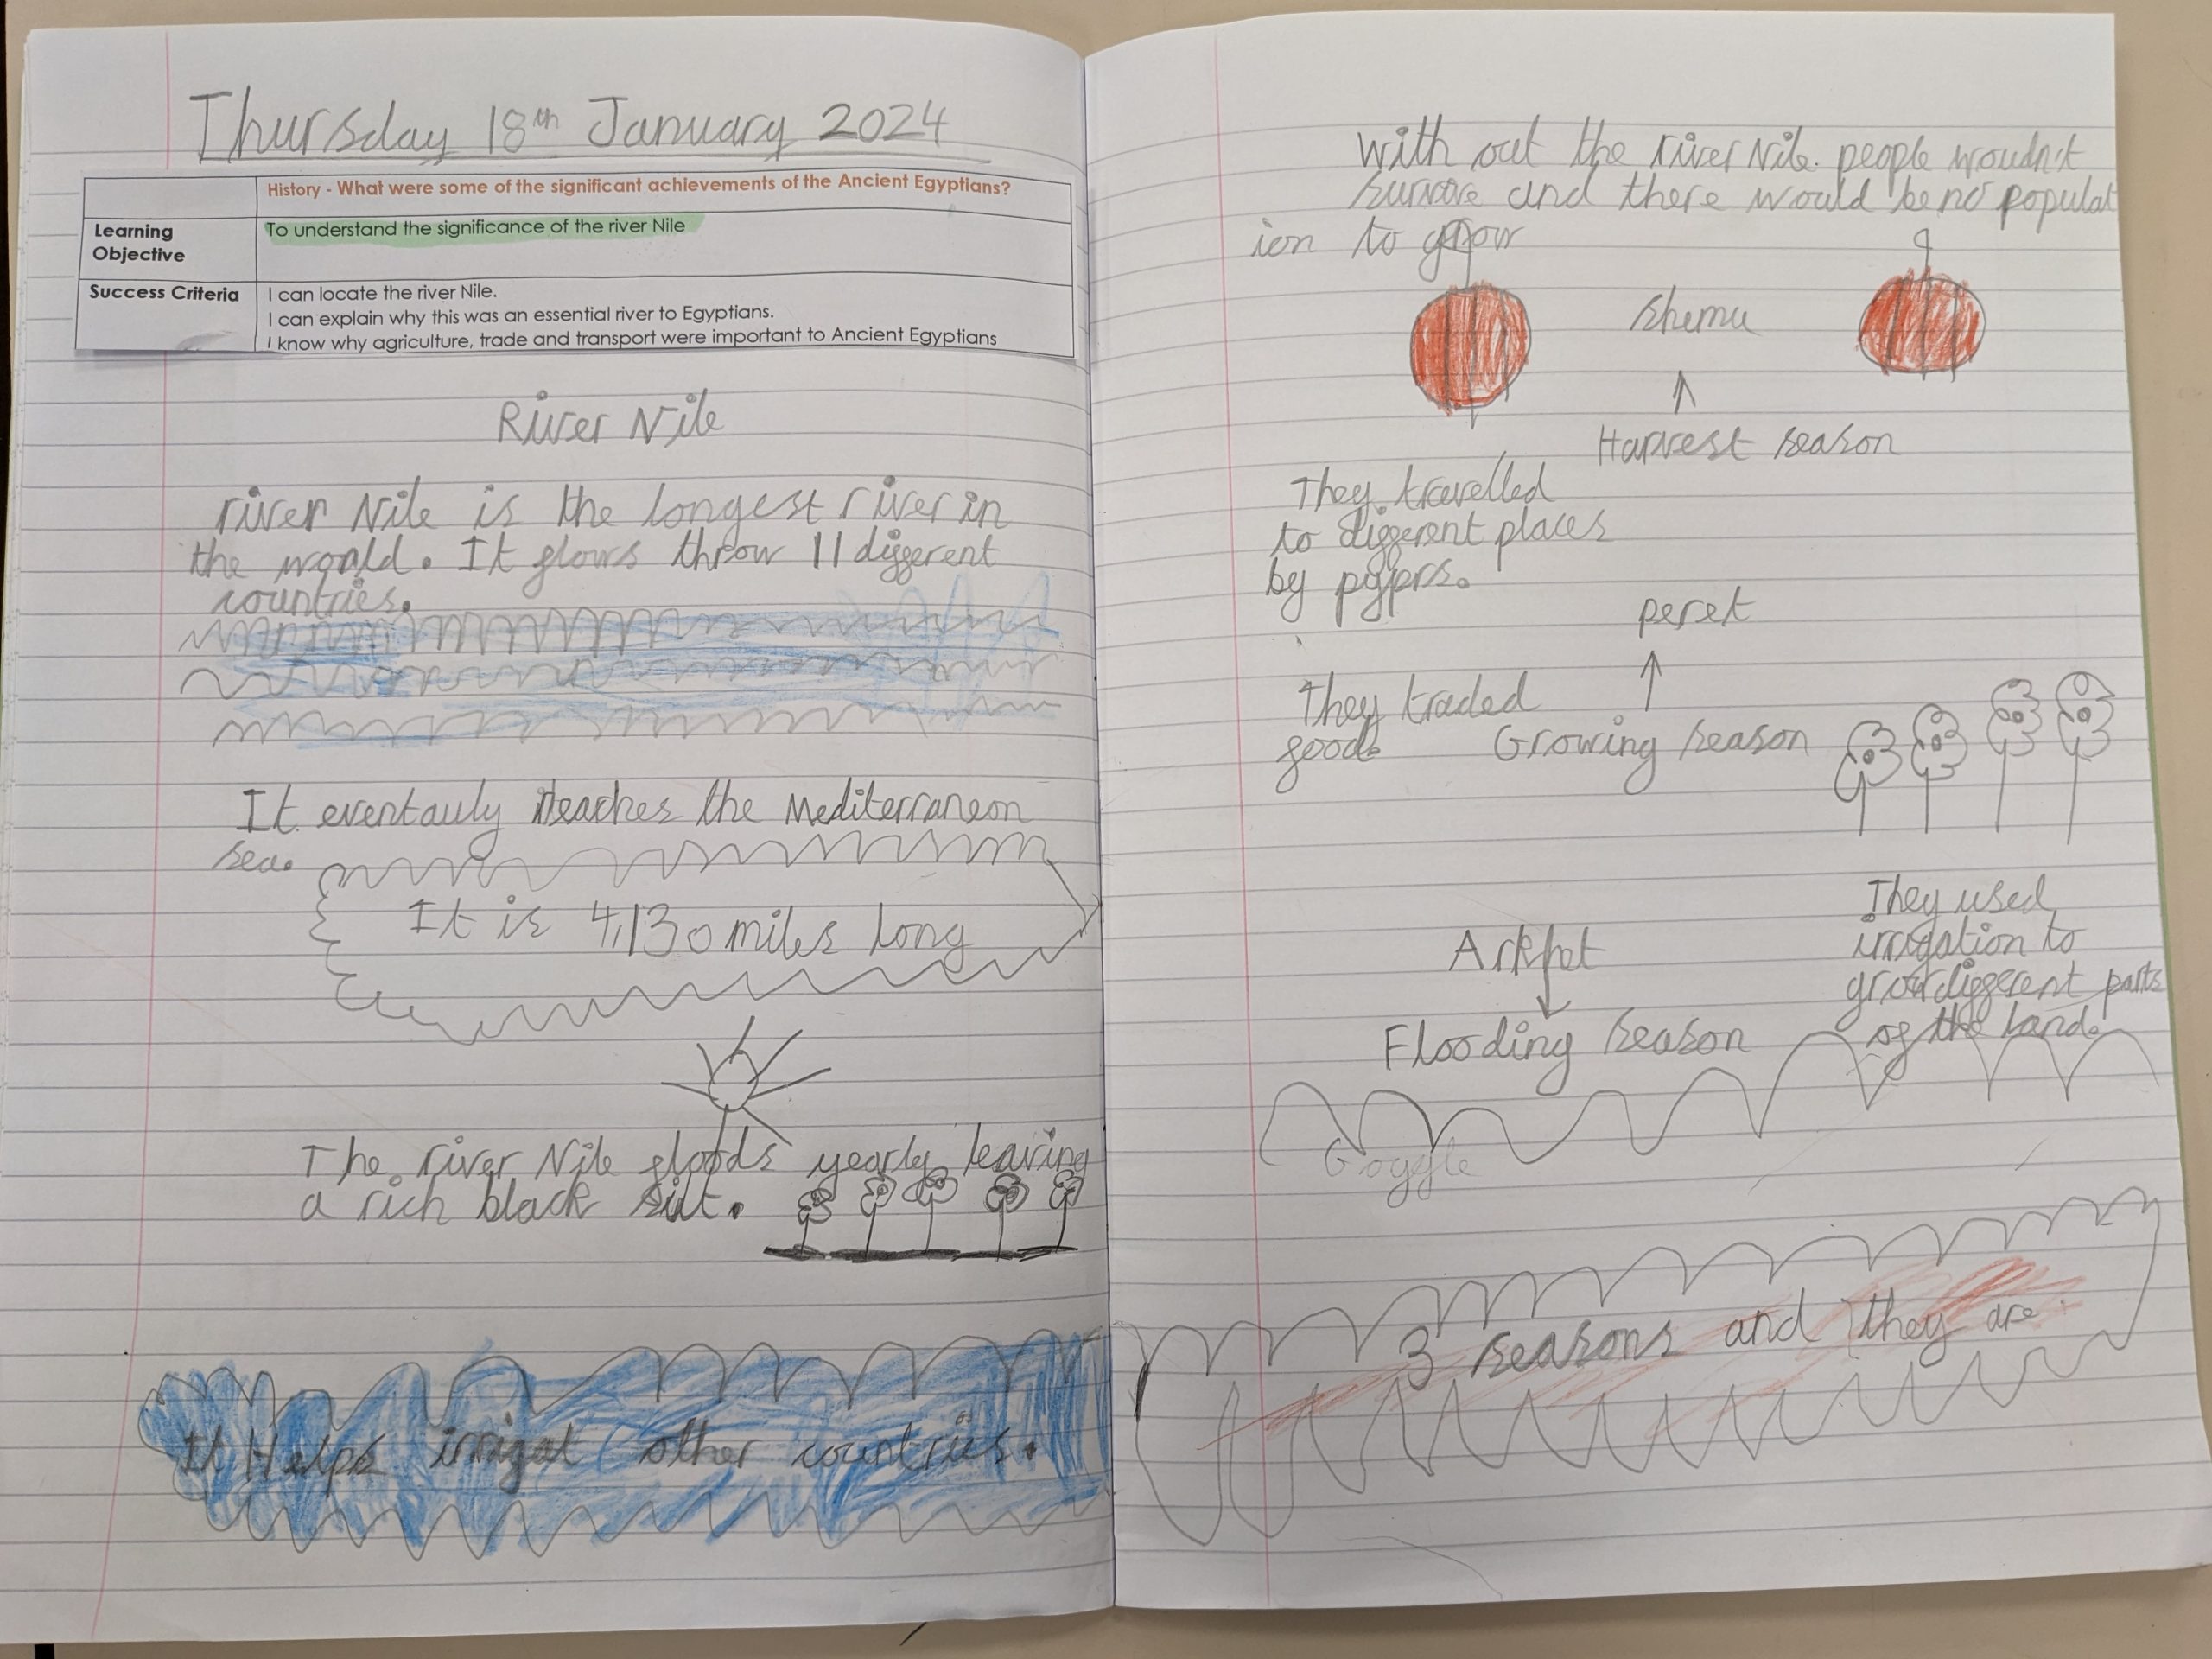 Thursday 18th January 2024
History - What were some of the significant achievements of the Ancient Egyptians?
Learning Objective
To understand the significance of the river Nile
Success Criteria
I can locate the river Nile.
I can explain why this was an essential river to Egyptians.
I know why agriculture, trade and transport were important to Ancient Egyptians
River Nile
river Nile is the longest river in
the world. It flows throw 11 different
countries.
It eventauly reaches the Mediterranean
sea.
It is 4,130 miles long
The river Nile floods yearly leaving
a rich black silt.
It Helps irrigat other countries.
With out the river Nile. people woudn't
survive and there would be no populat
ion to grow
Shemu
Harvest season
They travelled
to different places
by pyprs.
peret
They traded
good.
Growing season
They used
irrigation to
grow different parts
of the land.
Arkhet
Flooding season
Goggle
3 seasons and they are